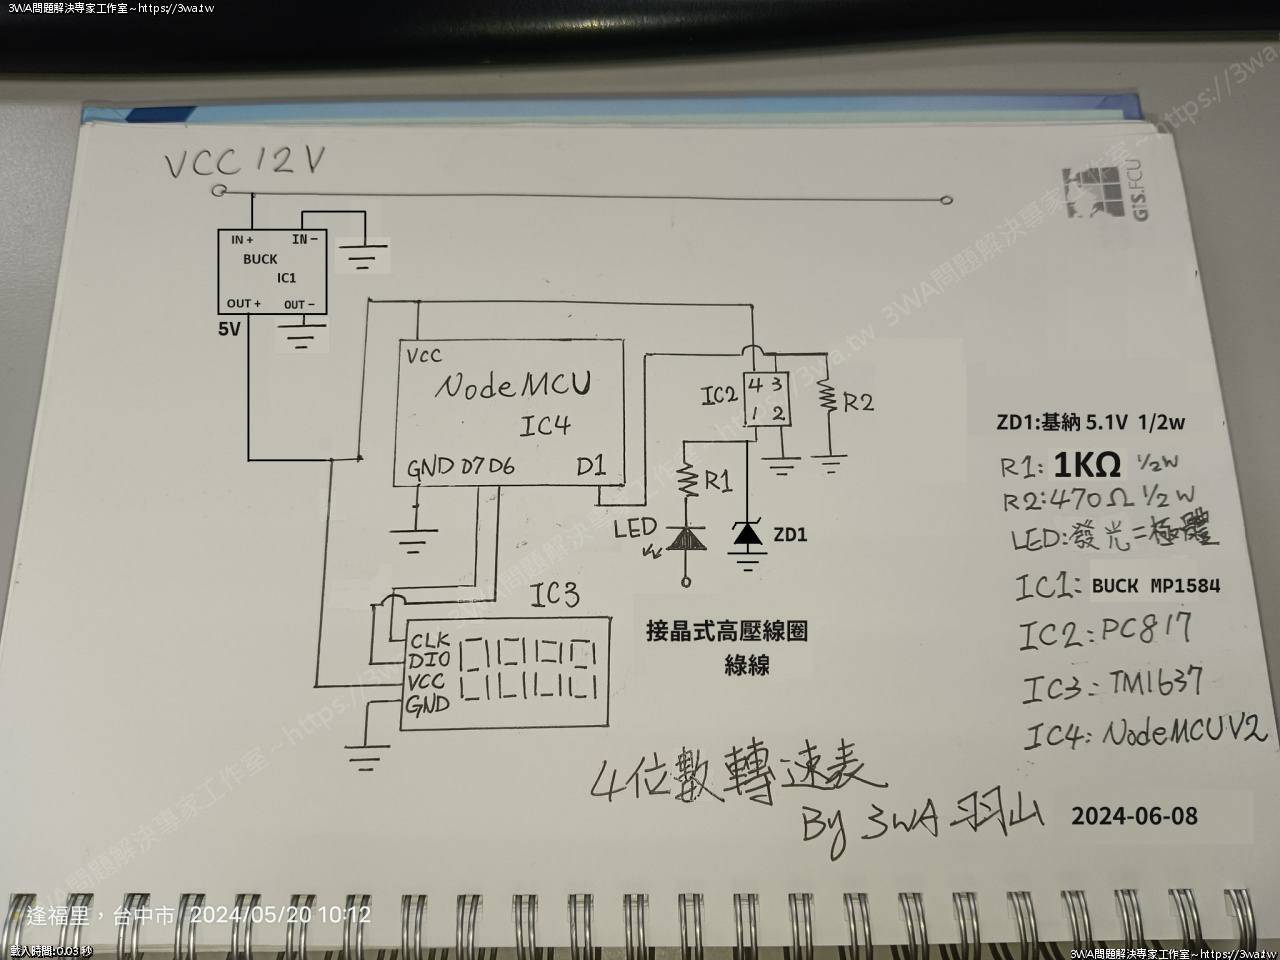 3WA問題解決專家工作室~https://3wa.tw
VCC 12V
GIS.FCU
IN + IN -
BUCK
IC1
OUT + OUT -
5V
VCC
NodeMCU
IC4
GND D7 D6 D1
IC2
4 3
1 2
R2
R1
LED
ZD1
IC3
CLK
DIO
VCC
GND
接晶式高壓線圈
綠線
ZD1:基納 5.1V 1/2w
R1: 1KΩ 1/2W
R2:470Ω 1/2W
LED:發光二極體
IC1: BUCK MP1584
IC2:PC817
IC3:TM1637
IC4:NodeMCUV2
4位數轉速表
By 3WA 羽山 2024-06-08
逢福里，台中市 2024/05/20 10:12
載入時間:0.03 秒
3WA問題解決專家工作室~https://3wa.tw
3WA問題解決專家工作室~https://3wa.tw
3WA問題解決專家工作室~https://3wa.tw